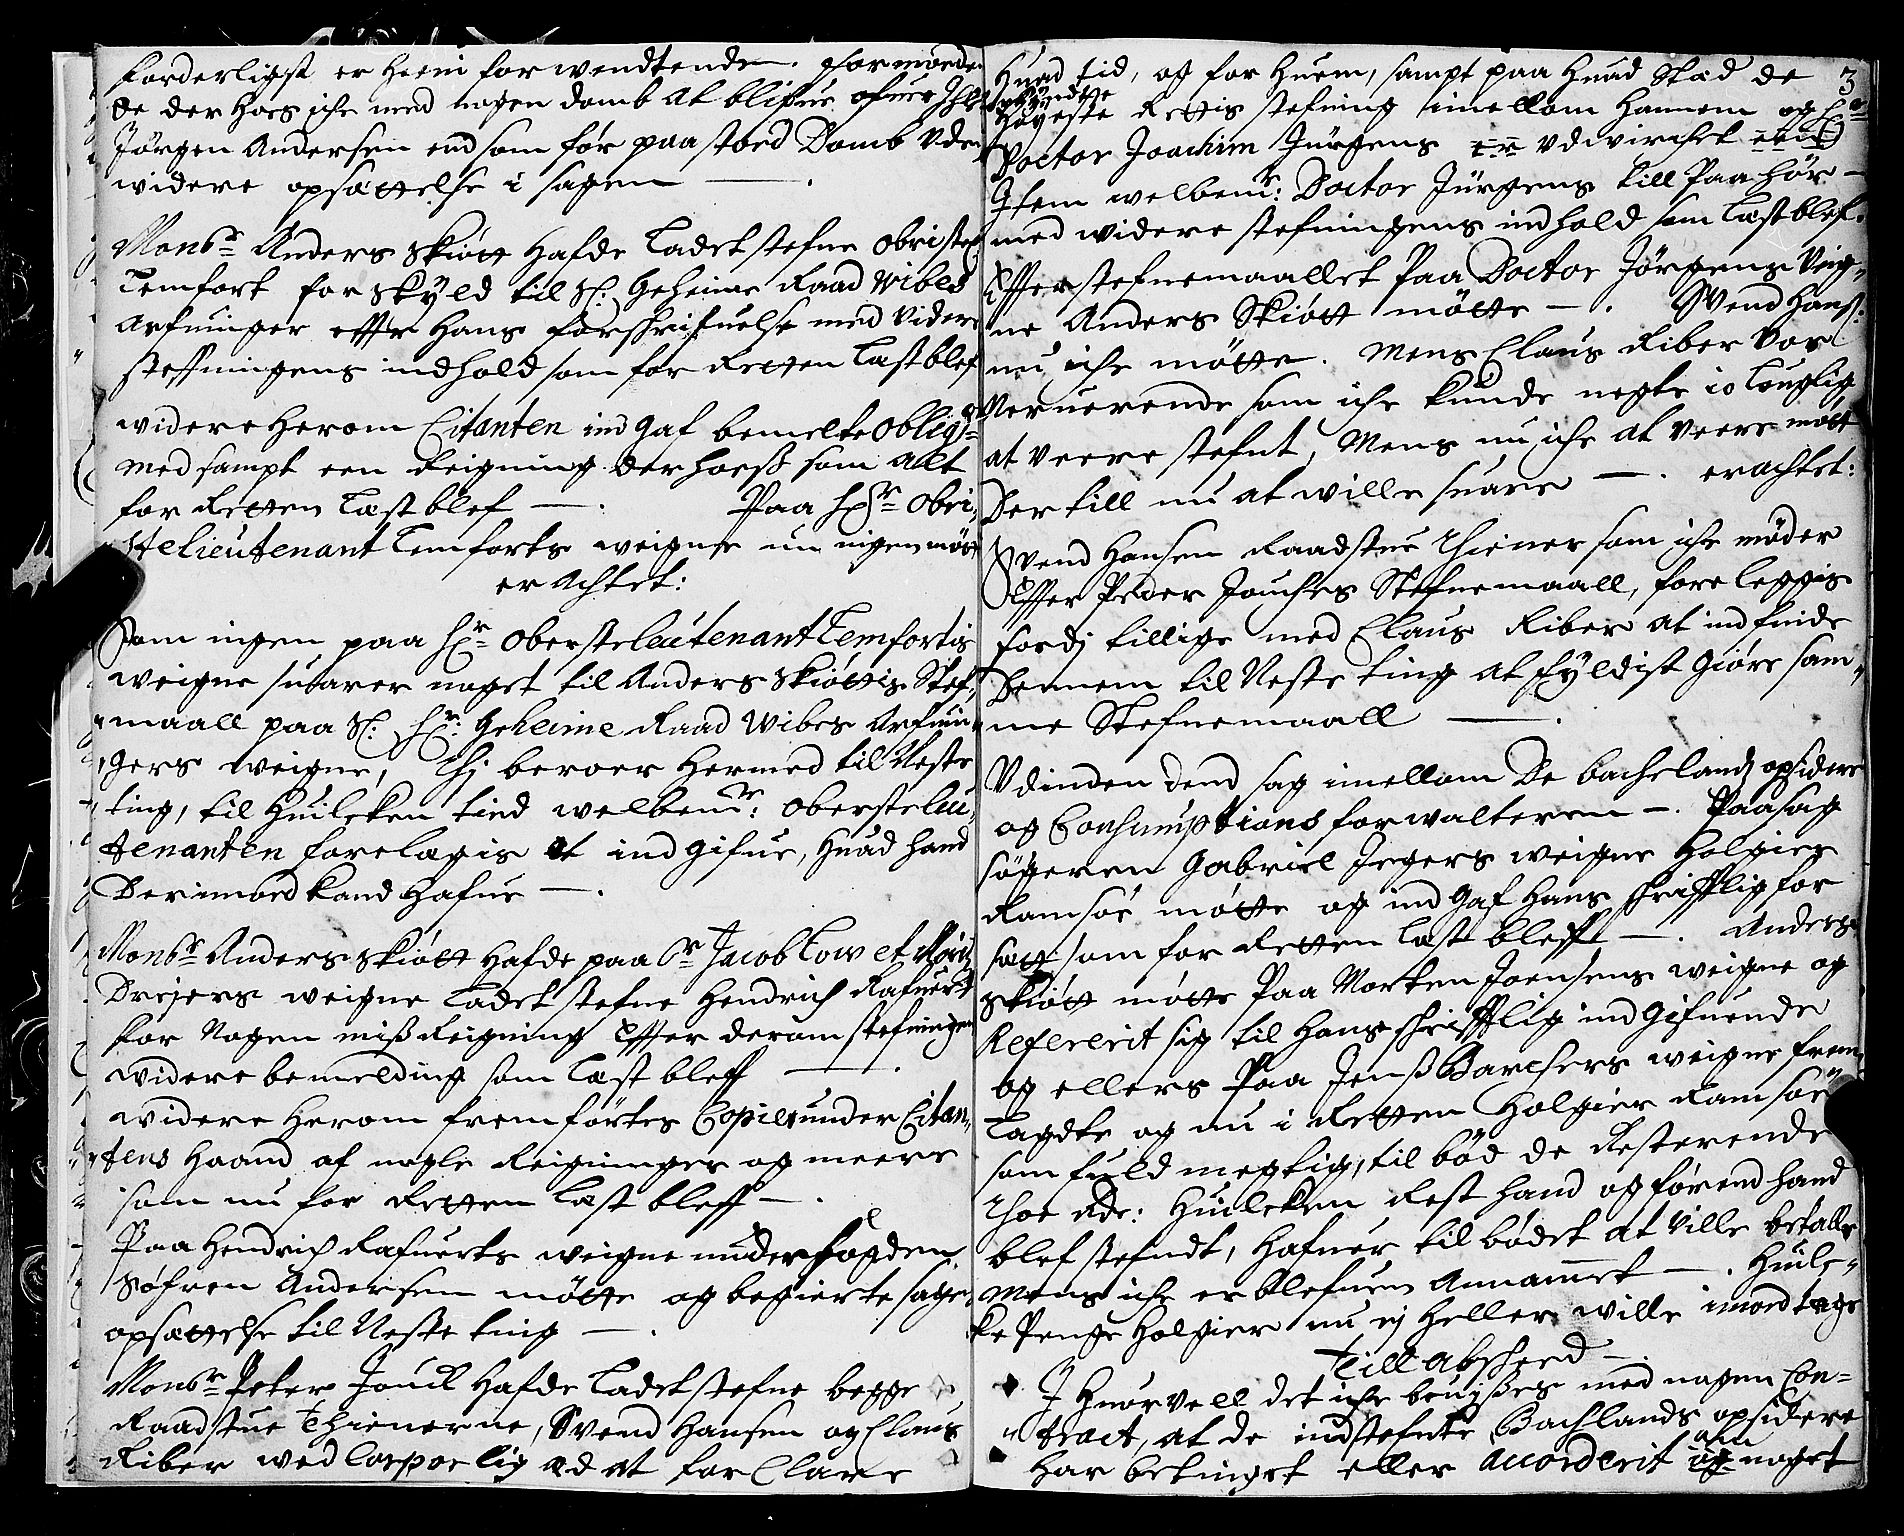 forderligst er heim forwendtende. formoder
de der hos iche med nogen domb at blifue ofuer Ihlt
Jörgen Andersen end som för paastoed Domb uden
widere opsættelse i sagen —.
Monsr Anders Skiøtt hafde ladet stefne Obriste
Lemfort for skyld til Sl: Geheime Raad Wibes
Arfuinger effter hans forschrifuelse med videre
steffningens indhold som for Retten læst blef
widere herom Citanten ind gaf bemelte Oblig:
med sampt een Reigning der hoess som alt
for Retten læst blef —. Paa Hr Obri„
stelieutenant Lemforts weigne nu ingen mötte
er Achtet:
Som ingen paa Hr Obersteleutenant Lemfortis
weigne suarer noget til Anders Skiøttis Stef„
maall paa Sl: Hr: Geheime Raad Wibes Arfuin„
gers weigne, Thj beroer hermed til Neste
ting, til Huilcken tied welbemr: Oberstelieu„
tenanten forelægis at ind gifue, huad hand
derimod kand hafue —.
Monsr Anders Skiøtt hafde paa Sr Jacob Low et
Drejers weigne ladet stefne Hendrich Rafuert
for Nogen miss Reigning effter derom stefningen
widere bemelding som læst bleff —.
widere herom fremförtes Copier under Citan„
tens haand af nogle Reigninger og meere
som nu for Retten læst bleff —.
Paa Hendrich Rafuerts weigne underfogden
Söfren Andersen mötte og begierte sagen
opsættelse til Neste ting —.
Monsr Peter Jouch hafde ladet stefne begge
Raadstue Thienerne, Svend Hansen og Claus
Riber wed Corporlig æd at forClare
3
Huad tid, og for huem, sampt paa huad Stæd de
Høyeste Rettis stefning imellom hannem og Hr
Doctor Joachim Jürgens er udvirchet
Item welbemr: Doctor Jürgens till Paa hör
med widere stefningens indhold som læst blef.
Effter stefnemaallet Paa Doctor Jörgens Veig„
ne Anders Skiøtt mötte —. Svend Hanss:
nu iche mötte. Mens Claus Riber var
Neruerende som iche kunde negte io louglig
at veere stefnt, Mens nu iche at veere mött
Der till nu at wille suare —. erachtet:
Svend Hansen Raadstue Thiener som iche möder
Effter Peder Jouches Stefnemaall, forelegges
fordj tillige med Claus Riber at indfinde
Dennem til Neste ting at fyldist giöre sam„
me Stefnemaall —.
Udinden dend sag imellom De bachelands opsidere
og Consumptions forwalteren —. Paa sag
sögeren Gabriel Jegers weigne Holgier
Ramsöe mötte og ind gaf hans schrifftlig for
sætt som for Retten læst bleff —. Anders
Skiøtt mötte Paa Morten Joensens weigne og
Refererit sig til hans schrifftlig ind gifuende
og ellers Paa Jenss Barchers weigne frem„
lagde og nu i Retten Holgier Ramsöe
som fuldmegtig, til böd de Resterende
Thoe Rdr: huilcken Rest hand og förend hand
blef stefndt, hafuer til bödet at ville betalle
Mens iche er blefuen Annammet —. Huilc„
ke Penge Holgier nu ej heller wille imod tage
Till Abscheed —.
J huorvell det iche beuisses med nogen Con„
tract, at de indstefnte Bachlands opsidere
har betinget eller Accorderit om noget